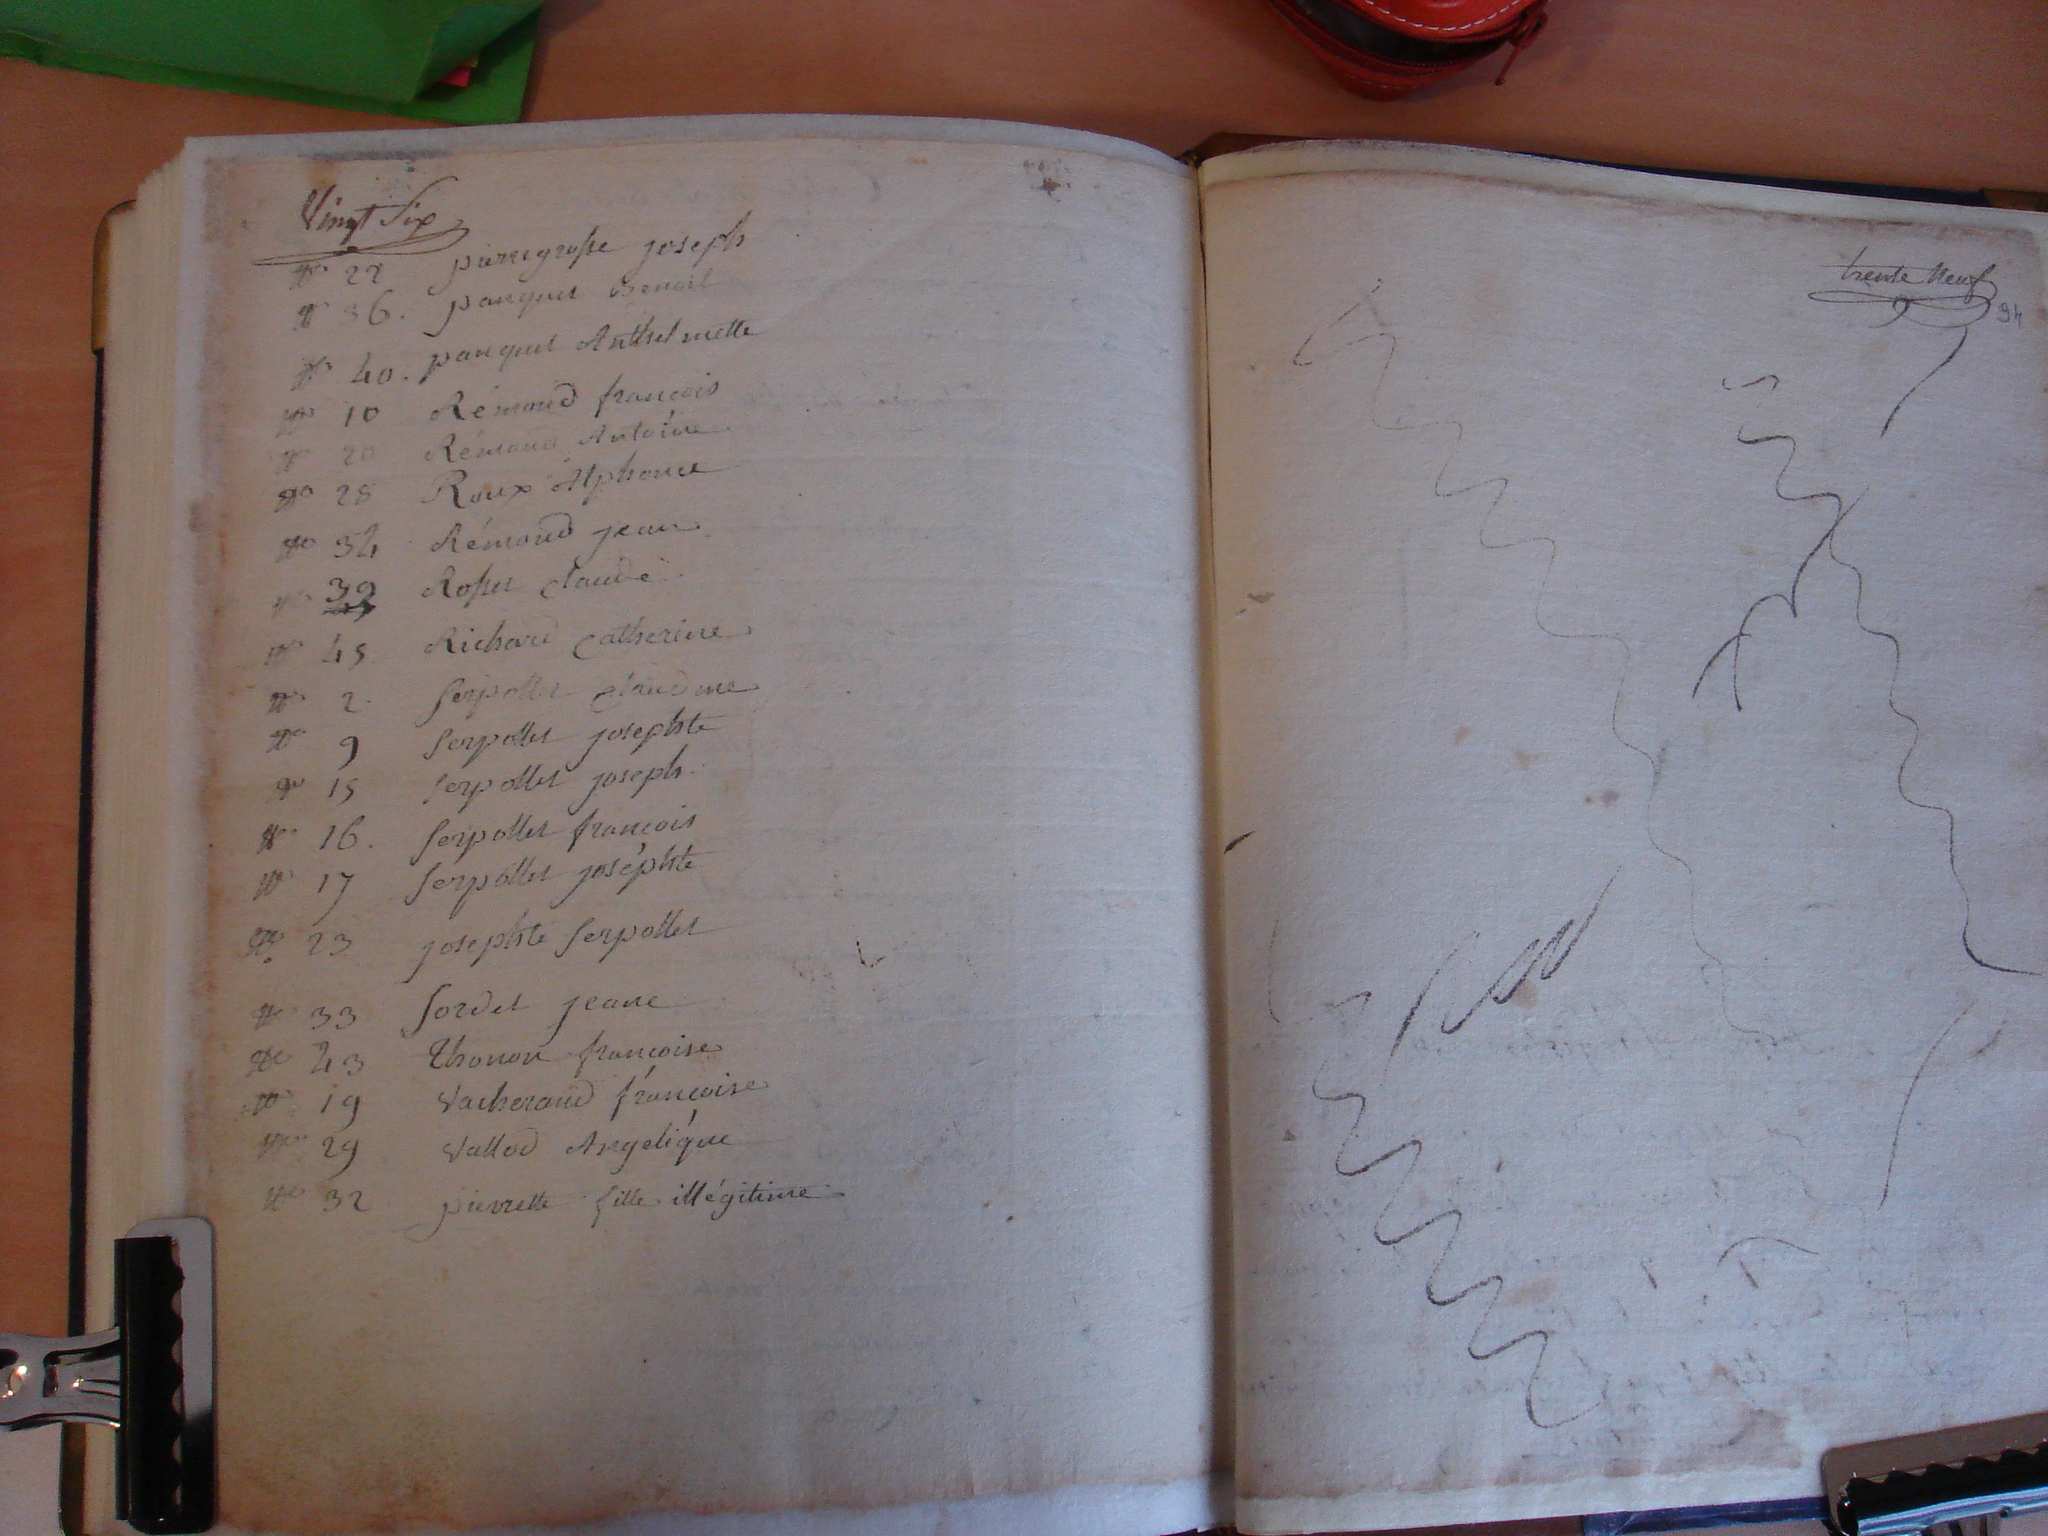 Vingt Six
No 22 pierregrosse joseph
No 36. panquet Benoit
No 40. panquet Anthelmette
No 10 Rémond françois
No 20 Rémond Antoine
No 28 Roux Alphonce
No 34 Rémond jean
No 39 Rosset claude
No 45 Richard catherine
No 2. Serpollet claudine
No 9 Serpollet josephte
No 15 Serpollet joseph
No 16. Serpollet françois
No 17 Serpollet joséphte
No 23 josephte Serpollet
No 33 Sordet jeane
No 43 Thonon françoise
No 19 Vacherand françoise
No 29 Vallod Angelique
No 32 pierrette fille illégitime
trente Neuf
94